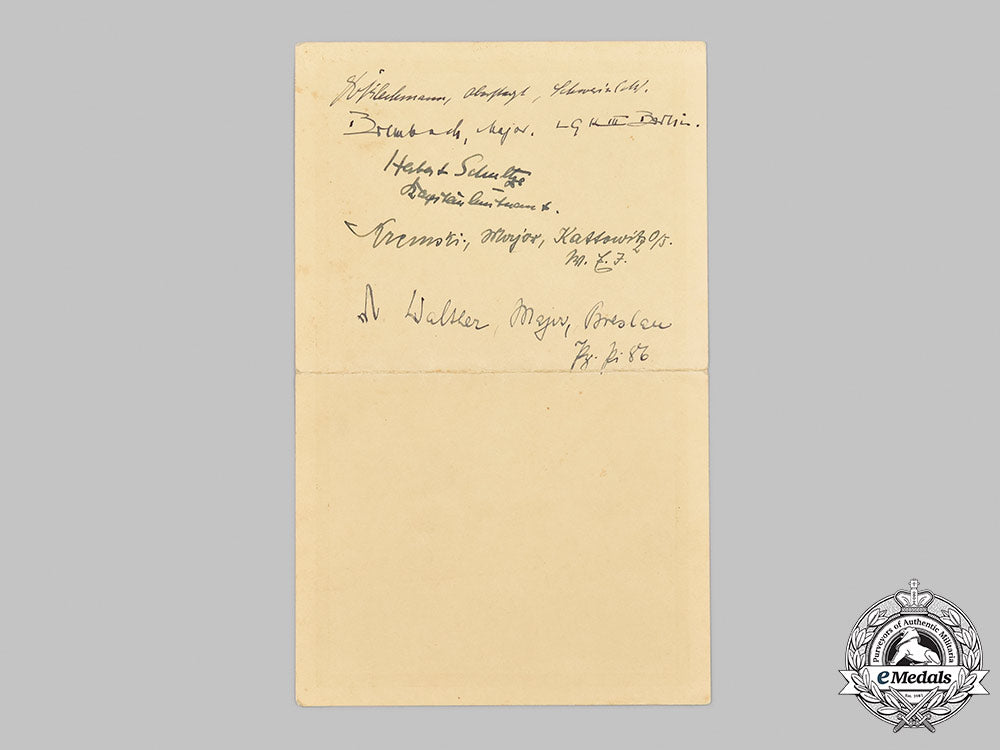 Major. LGK III Berlin.
Herbert Schultze
Kapitänleutnant.
Kremski, Major, Kattowitz O/S.
W. E. I.
Walther, Major, Breslau
Pz. Pi 86
Purveyors of Authentic Militaria
eMedals